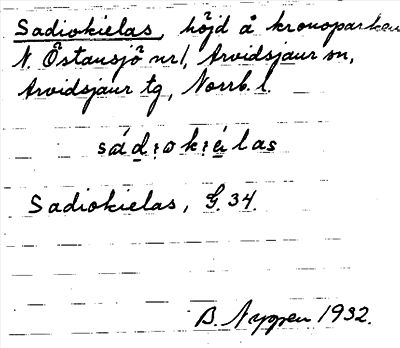 Sadiokielas, höjd å kronoparken
N. Östansjö nr 1, Arvidsjaur sn,
Arvidsjaur tg, Norrb. l.
sádiokiélas
Sadiokielas, G. 34.
B. Nyppen 1932.